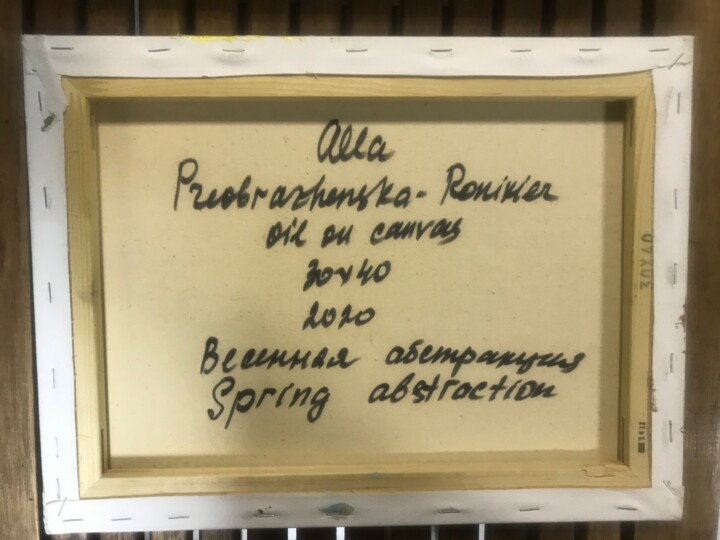 Alla
Preobrazhenska-Ronikier
oil on canvas
30x40
2020
Весенняя абстракция
Spring abstraction
30X40